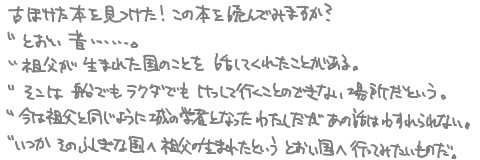 古ぼけた本を見つけた！この本を読んでみますか？
〃とおい 昔‥‥‥。
〃祖父が 生まれた国のことを 話してくれたことがある。
〃そこは 船でも ラクダでも けっして行くことのできない 場所だという。
〃今は祖父と同じように 城の学者となった わたしだが あの話はわすれられない。
〃いつか そのふしぎな国へ 祖父の生まれたという とおい国へ 行ってみたいものだ。